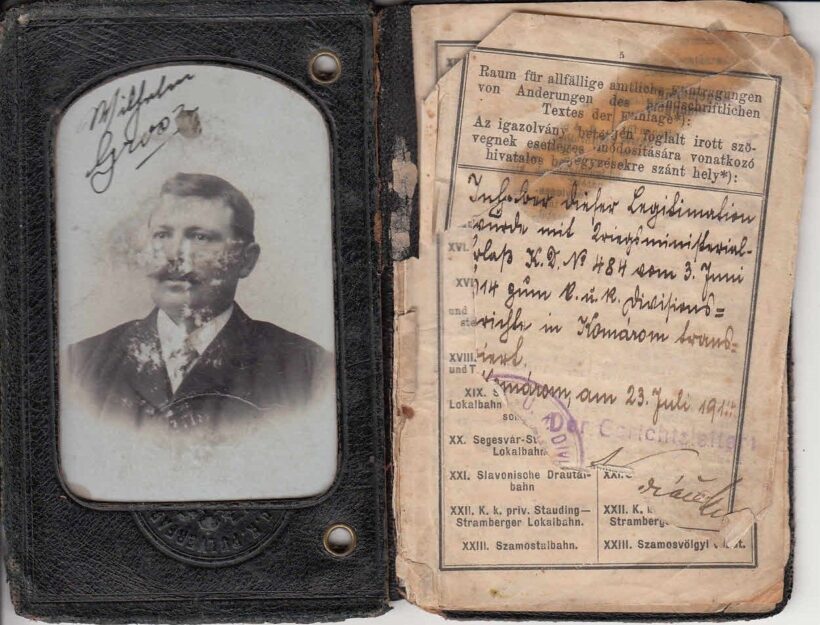 Wilhelm
Gross
5
Raum für allfällige amtliche Eintragungen
von Änderungen des handschriftlichen
Textes der Einlage*):
Az igazolvány betétjén foglalt irott szö-
vegnek esetleges módosítására vonatkozó
hivatalos bejegyzésekre szánt hely*):
Inhaber dieser Legitimation
wurde mit Kriegsministerial-
erlaß K.D. № 484 vom 3. Juni
914 zum k. u. k. Divisions=
richte in Komarom trans=
feriert.
Komárom, am 23. Juli 191
Der Gerichtsleiter:
XVI.
und
XVIII.
und T
XIX. S
Lokalbahn
XX. Segesvár-
Lokalbahn.
XXI. Slavonische Drautal-
bahn
XXII. K. k. priv. Stauding—
Stramberger Lokalbahn.
XXIII. Szamostalbahn.
XXI.
XXII. K. k
Stramberg
XXIII. Szamosvölgyi